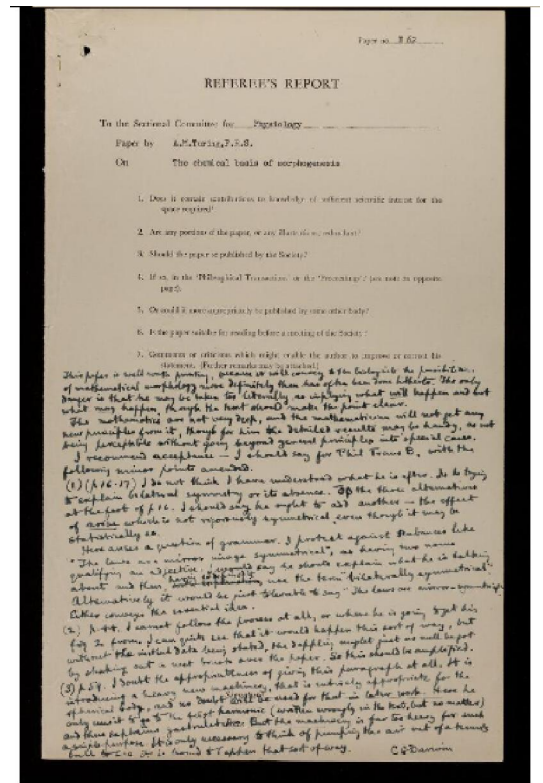 Paper no. B 62
REFEREE'S REPORT
To the Sectional Committee for Physiology
Paper by A.M.Turing,F.R.S.
On The chemical basis of morphogenesis
1. Does it contain contributions to knowledge of sufficient scientific interest for the
space required?
2. Are any portions of the paper, or any illustrations, redundant?
3. Should the paper be published by the Society?
4. If so, in the 'Philosophical Transactions' or the 'Proceedings'? (see note in opposite
page).
5. Or could it more appropriately be published by some other body?
6. Is the paper suitable for reading before a meeting of the Society?
7. Comments or criticisms which might enable the author to improve or correct his
statement. (Further remarks may be attached.)
This paper is well worth printing, because it will convey to the biologists the possibilities
of mathematical morphology more definitely than has often been done hitherto. The only
danger is that he may be taken too literally, as implying what will happen and not
what may happen, though the text should make the point clear.
The mathematics are not very deep, and the mathematicians will not get any
new principles from it, though for him the detailed results may be handy, as not
being perceptible without going beyond general principles into special cases.
I recommend acceptance – I should say for Phil Trans B, with the
following minor points amended.
(1) (p 16-17) I do not think I have understood what he is after. Is he trying
to explain bilateral symmetry or its absence. Of the three alternatives
at the foot of p 16. I should say he ought to add another – the effect
of noise which is not rigorously symmetrical even though it may be
statistically so.
Here arises a question of grammar. I protest against sentences like
"The laws are mirror image symmetrical", as having two nouns
qualifying an adjective. I would say he should explain what he is talking
about and then use the term "bilaterally symmetrical".
Alternatively it would be just tolerable to say "The laws are mirror-symmetrical".
Either conveys the essential idea.
(2) p. 44. I cannot follow the process at all, or where he is going to get his
fig 2 from. I can quite see that it would happen this sort of way, but
without the initial data being stated, the dappling might just as well be got
by shaking out a wet brush over the paper. So this should be amplified.
(3) p 59. I doubt the appropriateness of giving this paragraph at all. It is
introducing a heavy new machinery, that is entirely appropriate for the
spherical body, and no doubt will be need for that in later work. Here he
only uses it to go to the first harmonic (written wrongly in the text, but no matter)
and thus explains gastrulation. But the machinery is far too heavy for such
a simple purpose. It is only necessary to think of pumping the air out of a tennis
ball to see it is bound to happen that sort of way.
C G Darwin